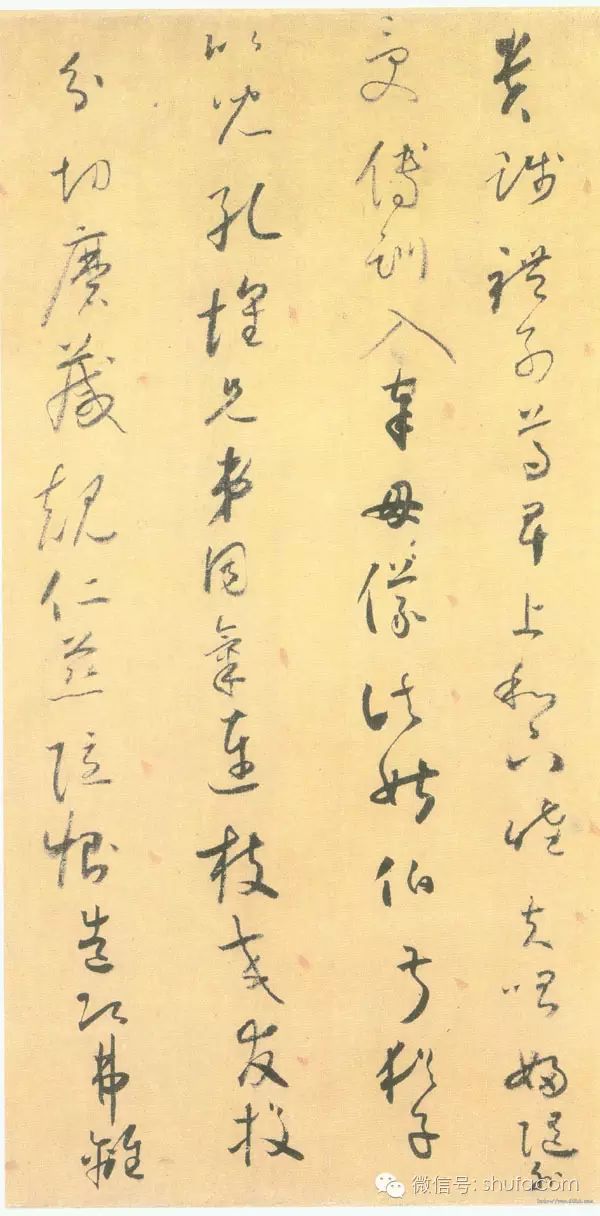 貴賤禮別尊卑上和下睦夫唱婦隨外
受傅訓入奉母儀諸姑伯叔猶子
比兒孔懷兄弟同氣連枝交友投
分切磨箴規仁慈隱惻造次弗離
微信号: shufacom